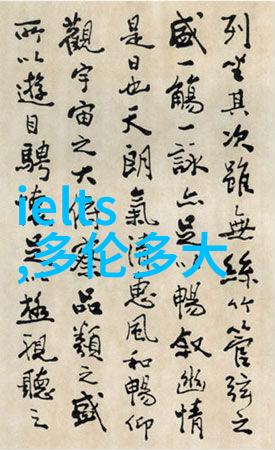 列坐其次雖無絲竹管弦之
盛一觴一詠亦足以暢敘幽情
是日也天朗氣清惠風和暢仰
觀宇宙之大俯察品類之盛
所以遊目騁懷足以極視聽之
ielts
,多伦多大